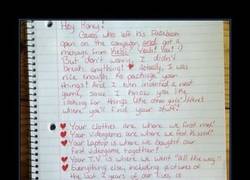 Hey Honey!
Guess who left his Facebook
open on the computer and got a
message from her? Yeah! You! :)
But don't worry, I didn't
break anything! Actually, I was
nice enough to package your
things! And I even invented a neat
game, since I know you like
looking for things like other girls! Where
you'll find your stuff!
Your clothes are where we first met!
Your videogames are where we first kissed!
Your laptop is where we bought our
first videogame together!
Your T.V is where we went "all the way"
Everything else, including pictures of
the last 2 years of our lives is